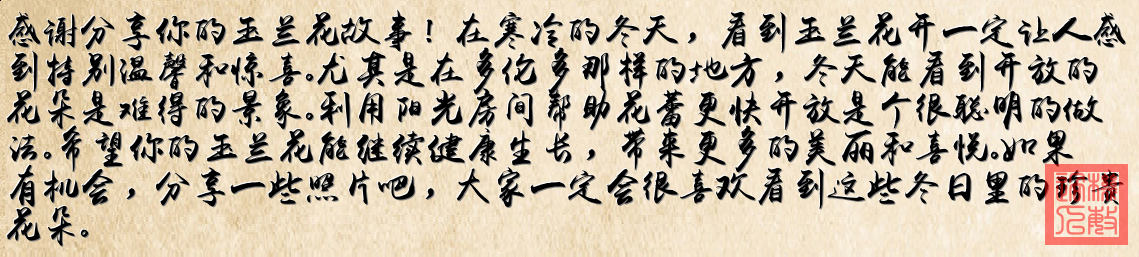 感谢分享你的玉兰花故事！在寒冷的冬天，看到玉兰花开一定让人感
到特别温馨和惊喜。尤其是在多伦多那样的地方，冬天能看到开放的
花朵是难得的景象。利用阳光房间帮助花蕾更快开放是个很聪明的做
法。希望你的玉兰花能继续健康生长，带来更多的美丽和喜悦。如果
有机会，分享一些照片吧，大家一定会很喜欢看到这些冬日里的珍贵
花朵。